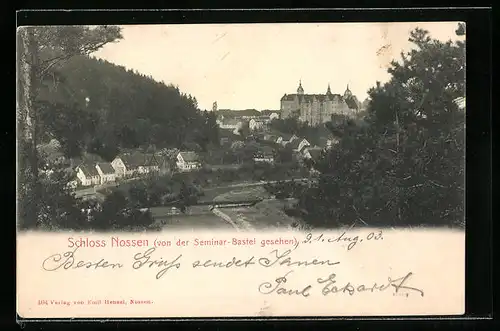 Schloss Nossen (von der Seminar-Bastei gesehen) 2. Aug. 03.
Besten Gruß sendet Ihnen
Paul Eckardt.
104 Verlag von Emil Hensel, Nossen.